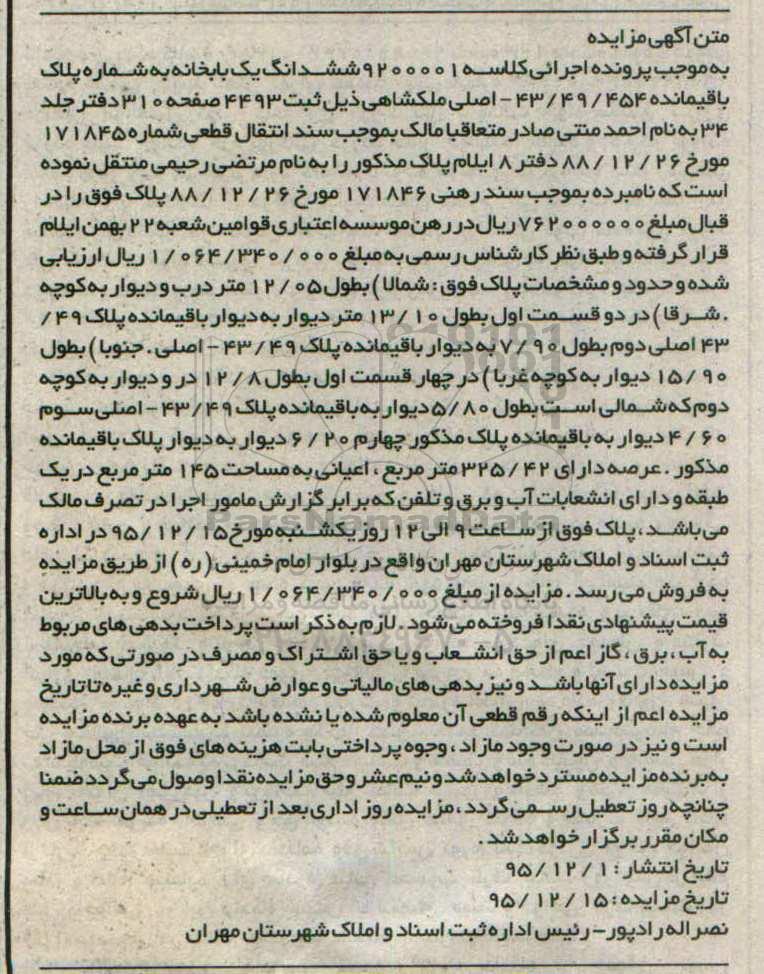 متن آگهی مزایده
به موجب پرونده اجرائی کلاسه ۹۲۰۰۰۰۱ ششدانگ یک بابخانه به شماره پلاک
باقیمانده ۴۵۴ / ۴۹ / ۴۳ – اصلی ملکشاهی ذیل ثبت ۴۴۹۳ صفحه ۳۱۰ دفتر جلد
۳۴ به نام احمد منتی صادر متعاقبا مالک بموجب سند انتقال قطعی شماره ۱۷۱۸۴۵
مورخ ۲۶ / ۱۲ / ۸۸ دفتر ۸ ایلام پلاک مذکور را به نام مرتضی رحیمی منتقل نموده
است که نامبرده بموجب سند رهنی ۱۷۱۸۴۶ مورخ ۲۶ / ۱۲ / ۸۸ پلاک فوق را در
قبال مبلغ ۷۶۲۰۰۰۰۰۰ ریال در رهن موسسه اعتباری قوامین شعبه ۲۲ بهمن ایلام
قرار گرفته و طبق نظر کارشناس رسمی به مبلغ ۰۰۰ / ۳۴۰ / ۰۶۴ / ۱ ریال ارزیابی
شده و حدود و مشخصات پلاک فوق : شمالا ) بطول ۰۵ / ۱۲ متر درب و دیوار به کوچه
. شرقا ) در دو قسمت اول بطول ۱۰ / ۱۳ متر دیوار به دیوار باقیمانده پلاک ۴۹ /
۴۳ اصلی دوم بطول ۹۰ / ۷ به دیوار باقیمانده پلاک ۴۹ / ۴۳ – اصلی . جنوبا ) بطول
۹۰ / ۱۵ دیوار به کوچه غربا ) در چهار قسمت اول بطول ۸ / ۱۲ در و دیوار به کوچه
دوم که شمالی است بطول ۸۰ / ۵ دیوار به باقیمانده پلاک ۴۹ / ۴۳ – اصلی سوم
۶۰ / ۴ دیوار به باقیمانده پلاک مذکور چهارم ۲۰ / ۶ دیوار به دیوار پلاک باقیمانده
مذکور . عرصه دارای ۴۲ / ۳۲۵ متر مربع ، اعیانی به مساحت ۱۴۵ متر مربع در یک
طبقه و دارای انشعابات آب و برق و تلفن که برابر گزارش مامور اجرا در تصرف مالک
می باشد ، پلاک فوق از ساعت ۹ الی ۱۲ روز یکشنبه مورخ ۱۵ / ۱۲ / ۹۵ در اداره
ثبت اسناد و املاک شهرستان مهران واقع در بلوار امام خمینی ( ره ) از طریق مزایده
به فروش می رسد . مزایده از مبلغ ۰۰۰ / ۳۴۰ / ۰۶۴ / ۱ ریال شروع و به بالاترین
قیمت پیشنهادی نقدا فروخته می شود . لازم به ذکر است پرداخت بدهی های مربوط
به آب ، برق ، گاز اعم از حق انشعاب و یا حق اشتراک و مصرف در صورتی که مورد
مزایده دارای آنها باشد و نیز بدهی های مالیاتی و عوارض شهرداری و غیره تا تاریخ
مزایده اعم از اینکه رقم قطعی آن معلوم شده یا نشده باشد به عهده برنده مزایده
است و نیز در صورت وجود مازاد ، وجوه پرداختی بابت هزینه های فوق از محل مازاد
به برنده مزایده مسترد خواهد شد و نیم عشر و حق مزایده نقدا وصول می گردد ضمنا
چنانچه روز تعطیل رسمی گردد ، مزایده روز اداری بعد از تعطیلی در همان ساعت و
مکان مقرر برگزار خواهد شد .
تاریخ انتشار : ۱ / ۱۲ / ۹۵
تاریخ مزایده : ۱۵ / ۱۲ / ۹۵
نصراله رادپور – رئیس اداره ثبت اسناد و املاک شهرستان مهران